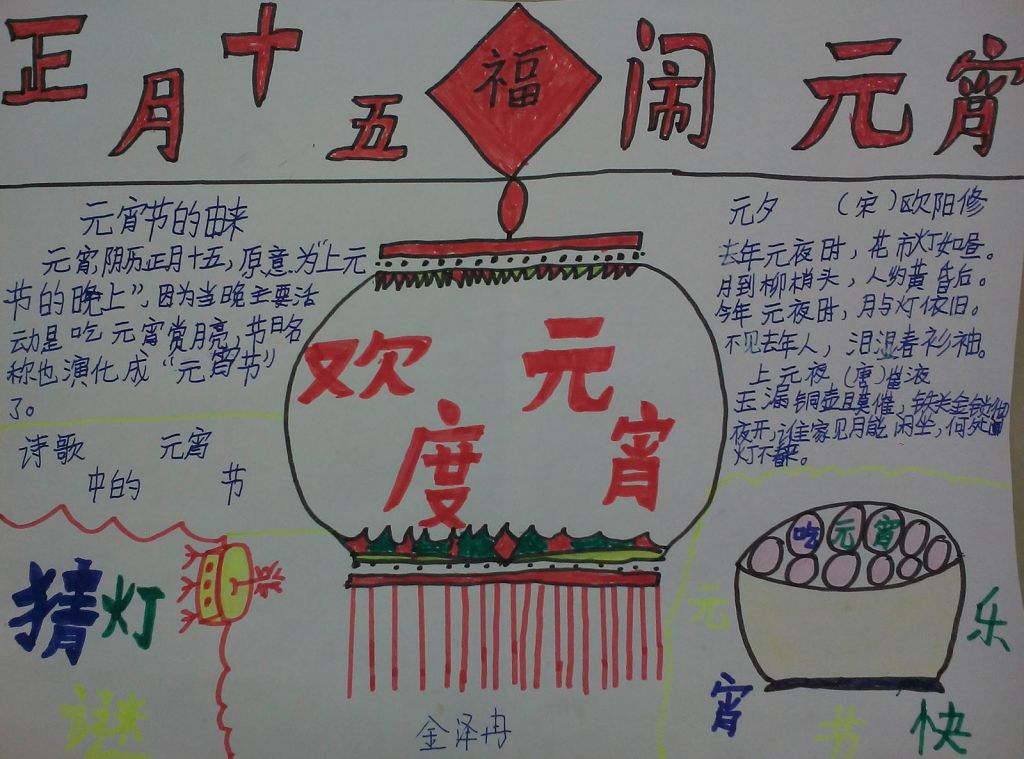 正月十五 福 闹元宵
元宵节的由来
元宵,阴历正月十五,原意为“上元
节的晚上”,因为当晚主要活
动是吃元宵赏月亮,节日名
称也演化成“元宵节”
了。
诗歌 元宵
中的 节
猜灯
谜
欢元
度宵
金泽冉
元夕 (宋)欧阳修
去年元夜时,花市灯如昼。
月到柳梢头,人约黄昏后。
今年元夜时,月与灯依旧。
不见去年人,泪湿春衫袖。
上元夜(唐)崔液
玉漏铜壶且莫催,铁关金锁彻
夜开,谁家见月能闲坐,何处闻
灯不看来。
吃元宵
元 乐
宵 节 快